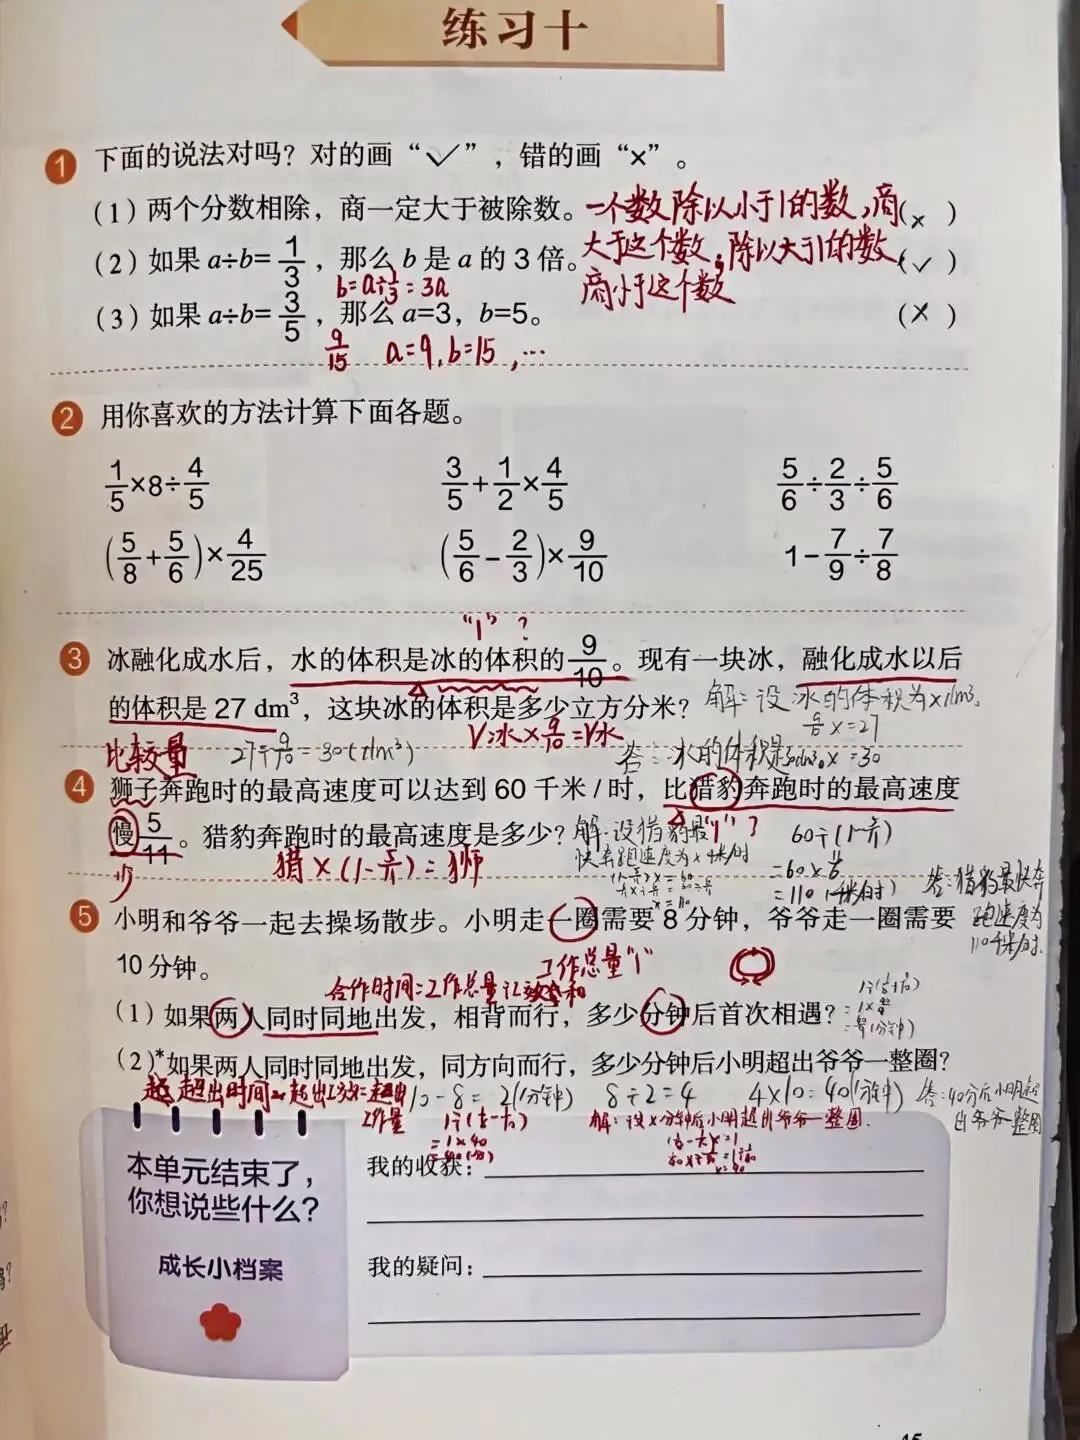 练习十
1 下面的说法对吗？对的画“✓”，错的画“×”。
(1) 两个分数相除，商一定大于被除数。 一个数除以小于1的数，商 (×)
(2) 如果 a÷b=1/3，那么 b 是 a 的 3 倍。 大于这个数；除以大于1的数 (✓)
b=a÷1/3=3a 商小于这个数
(3) 如果 a÷b=3/5，那么 a=3，b=5。 (×)
9/15 a=9，b=15，…
2 用你喜欢的方法计算下面各题。
1/5×8÷4/5 3/5+1/2×4/5 5/6÷2/3÷5/6
(5/8+5/6)×4/25 (5/6−2/3)×9/10 1−7/9÷7/8
“1” ?
3 冰融化成水后，水的体积是冰的体积的9/10。现有一块冰，融化成水以后
的体积是 27 dm³，这块冰的体积是多少立方分米？ 解：设冰的体积为x dm³。
9/10 x=27
比较量 27÷9/10=30(dm³) V冰×9/10=V水 答：冰的体积是30dm³。 x=30
4 狮子奔跑时的最高速度可以达到 60 千米/时，比猎豹奔跑时的最高速度
慢5/11。猎豹奔跑时的最高速度是多少？ 解：设猎豹最 “1” ?
快奔跑速度为x千米/时
60÷(1−5/11)
少 猎×(1−5/11)=狮
=60×11/6
=110(千米/时)
x=110
答：猎豹最快奔
跑速度为
110千米/时。
5 小明和爷爷一起去操场散步。小明走一圈需要 8 分钟，爷爷走一圈需要
10 分钟。 工作总量“1”
合作时间=工作总量÷工效和
(1) 如果两人同时同地出发，相背而行，多少分钟后首次相遇？
1÷(1/8+1/10)
(2)*如果两人同时同地出发，同方向而行，多少分钟后小明超出爷爷一整圈？
超出时间 超出工效=超出
工作量
10−8=2(分钟) 8÷2=4 4×10=40(分钟) 答：40分后小明超
出爷爷一整圈
1÷(1/8−1/10)
=1×40
=40(分)
解：设x分钟后小明超出爷爷一整圈.
(1/8−1/10)x=1
x=40
本单元结束了，
你想说些什么？
成长小档案
我的收获：
我的疑问：